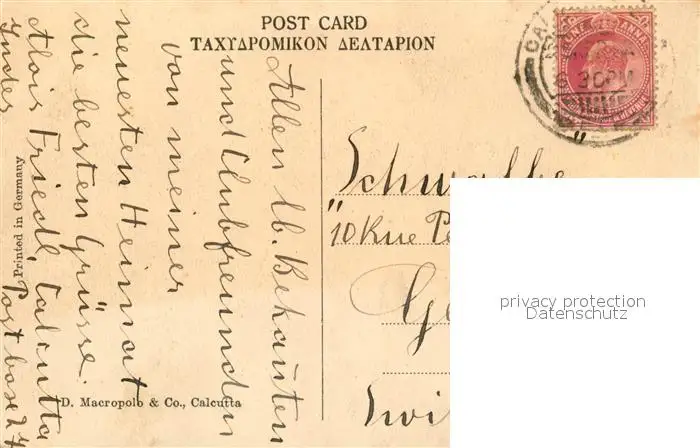 POST CARD
ΤΑΧΥΔΡΟΜΙΚΟΝ ΔΕΛΤΑΡΙΟΝ
ONE ANNA
30PM
Allen lb. Bekannten
und Clubfreunden
von meiner
neuesten Heimat
die besten Grüsse.
Alois Friedl, Calcutta
Postbox 24
Printed in Germany
D. Macropolo & Co., Calcutta
"Schwalbe"
10 Rue
privacy protection
Datenschutz